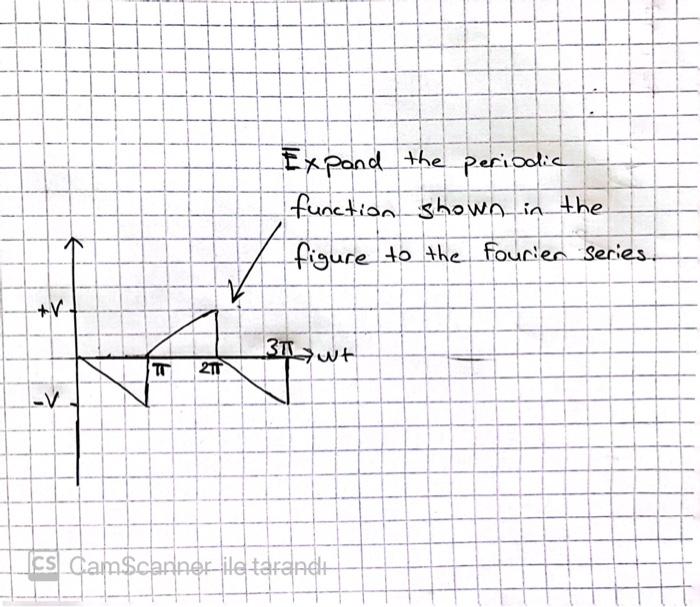 Expand the periodic
function shown in the
figure to the Fourier series.
+V
3π
wt
π
2π
-V
CS CamScanner ile tarandı